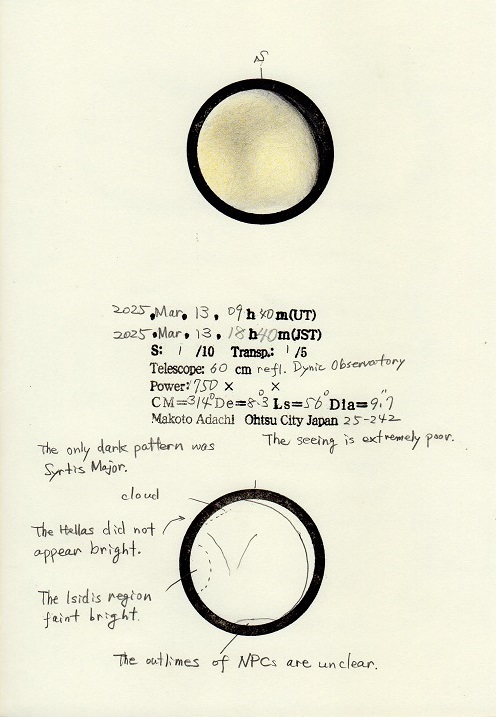 S
2025. Mar. 13, 09h40m(UT)
2025. Mar. 13, 18h40m(JST)
S: 1 /10 Transp.: 1 /5
Telescope: 60 cm refl. Dynic Observatory
Power: 750 × ×
CM=314° De=8.3° Ls=56° Dia=9."7
Makoto Adachi Ohtsu City Japan 25-242
The only dark pattern was
Syrtis Major.
The seeing is extremely poor.
cloud
The Hellas did not
appear bright.
The Isidis region
faint bright.
The outlimes of NPCs are unclear.